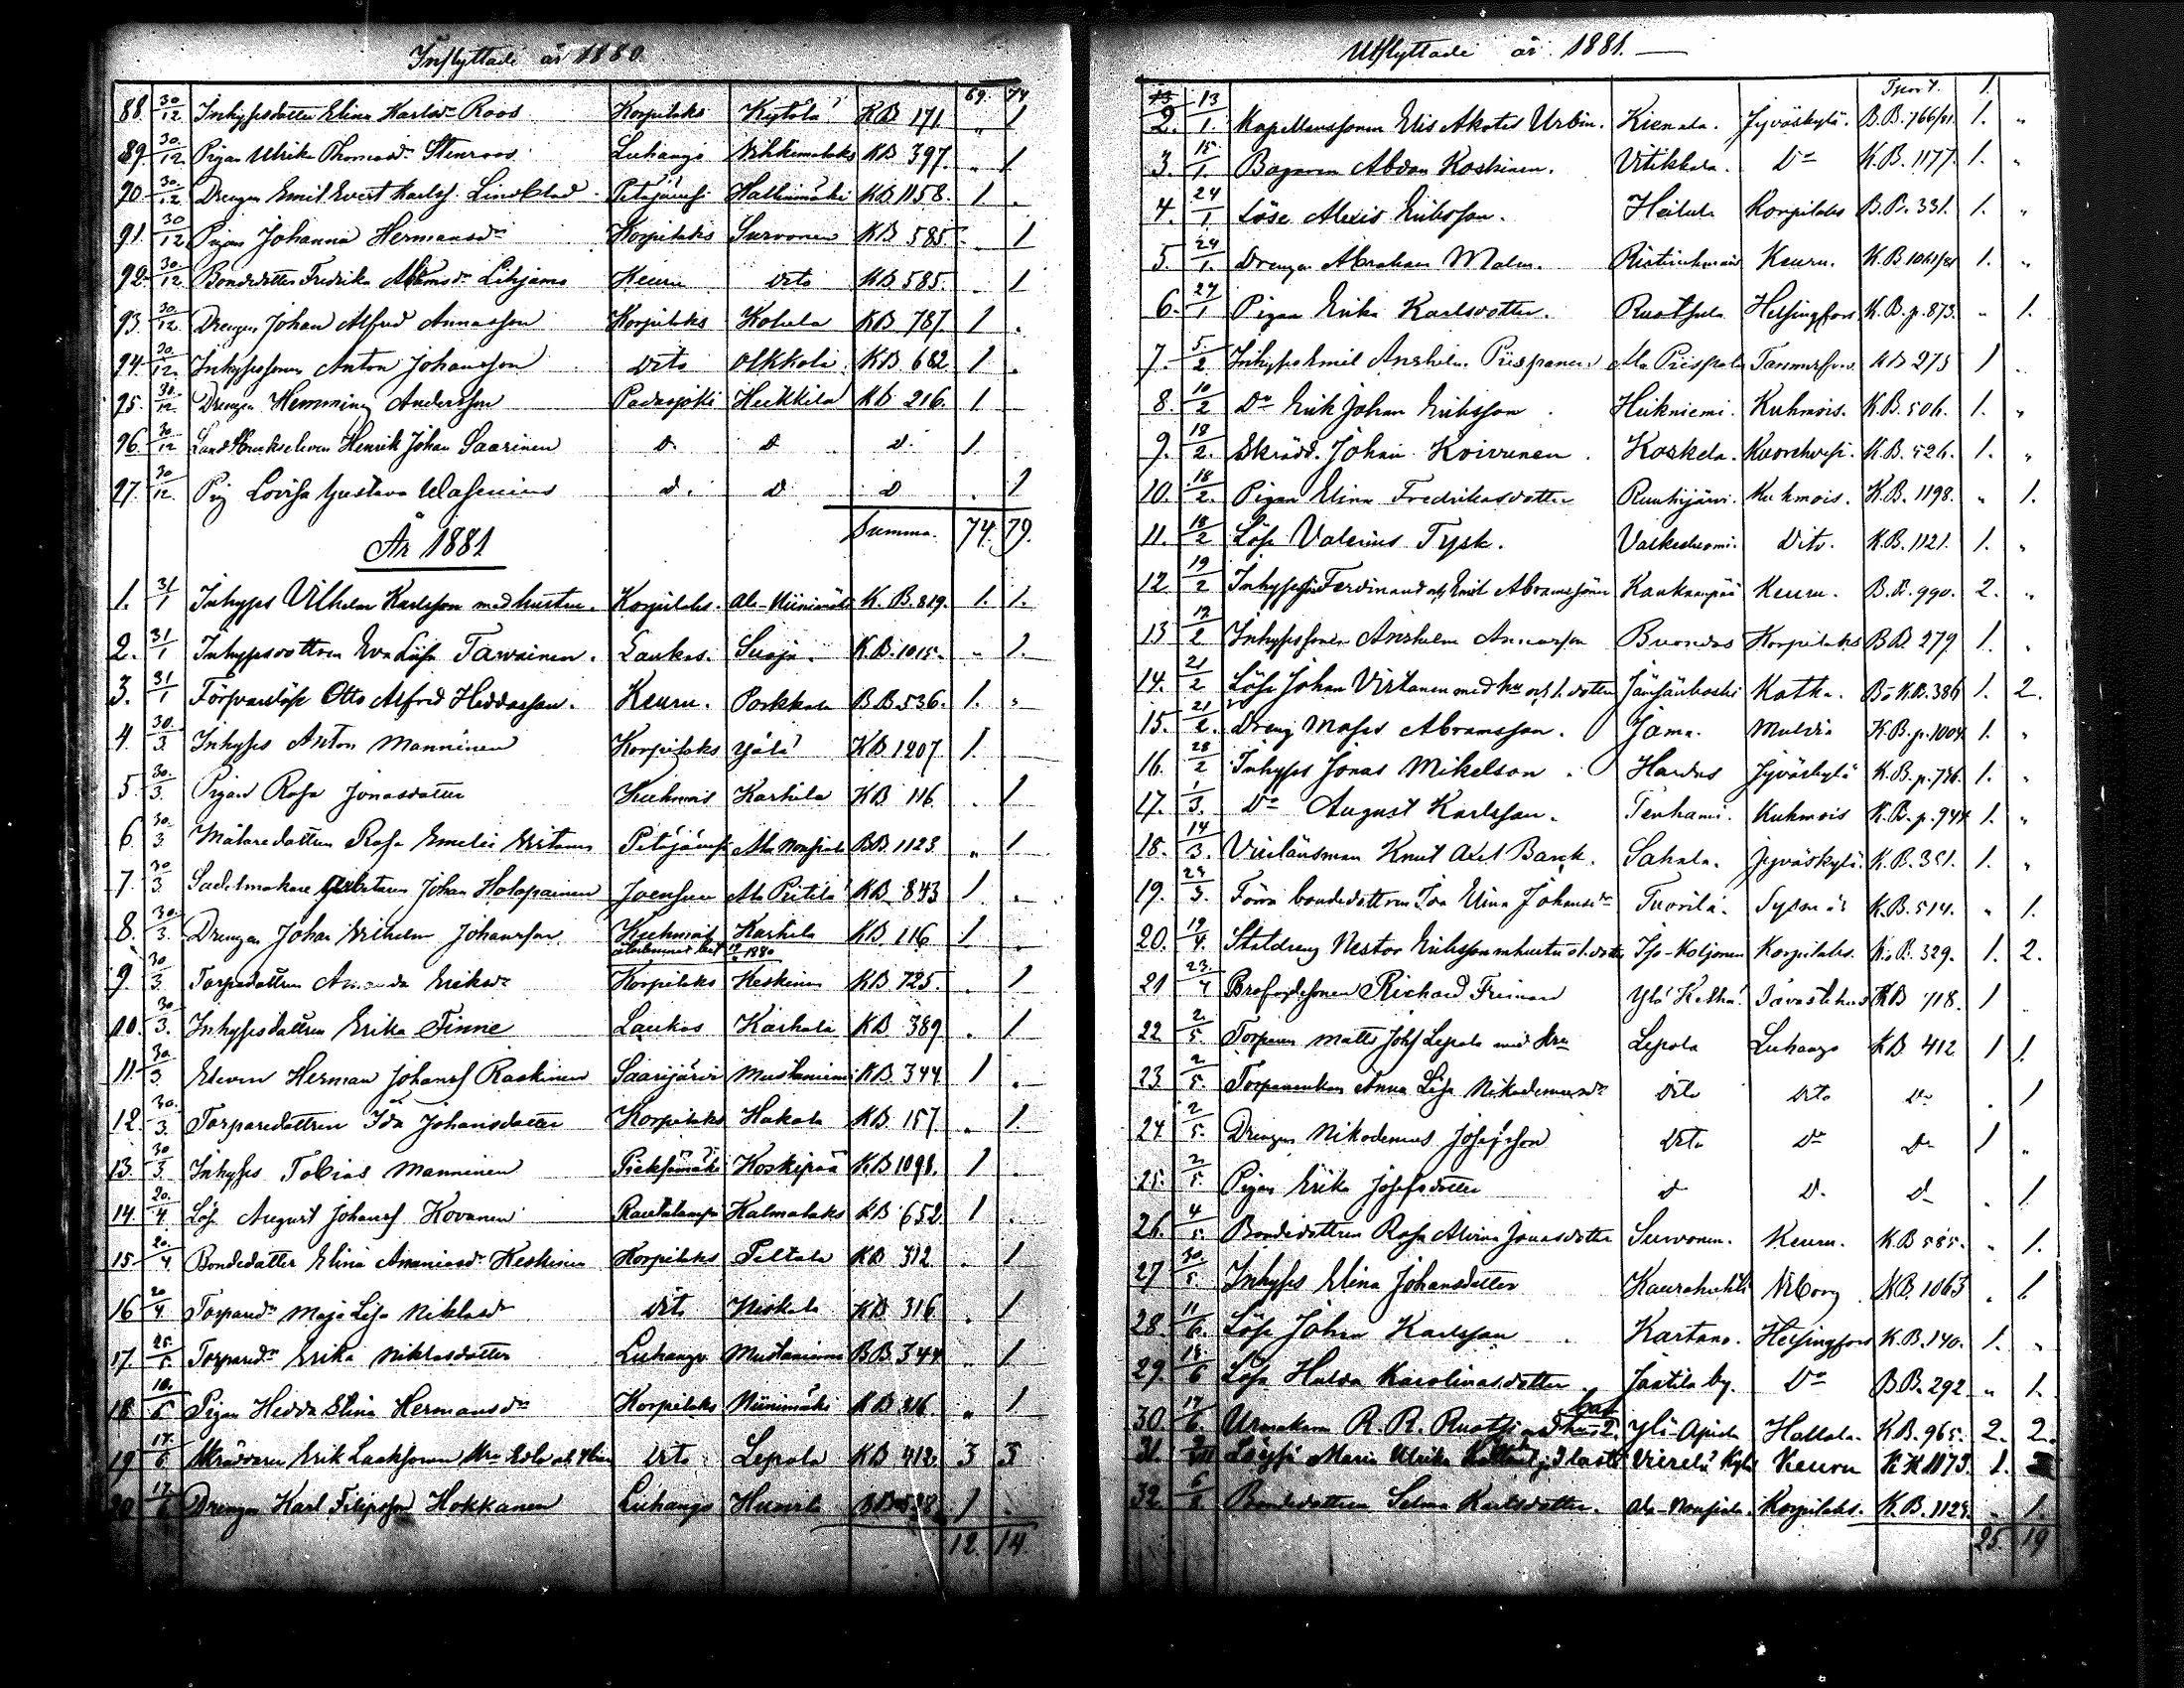 Inflyttade år 1880.
69. 74
88. 30/12 Inhysesdotter Elina Karlsdr Roos Korpilaks Kytölä KB 171. „ 1
89. 30/12 Pigan Ulrika Thomasdr Stenroos Luhango KB 397. „ 1
90. 30/12 Drengen Emil Evert Karlsf. Lindblad Petäjävesi Halkimäki KB 1158. 1 .
91. 30/12 Pigan Johanna Hermansdr Korpilaks Survonen KB 585. „ 1
92. 30/12 Bondedotter Fredrika Lihjamo Keuru dito KB 585. . 1
93. 30/12 Drengen Johan Alfred Annasson Korpilaks Kohola KB 787. 1 .
94. 30/12. Inhysessonen Anton Johansson dito Olkkola KB 682 1 .
95. 30/12 Drengen Hemming Andersson Padasjoki Heikkilä KB 216. 1
96. 30/12 Henrik Johan Saarinen d. d d. 1.
97. 30/12. Pig Lovisa Gustava Wasenius d. d d . 1
Summa. 74. 79.
År 1881
1. 31/1 Inhyses Vilhelm Karlsson med hustru. Korpilaks. Ala-Niinimäki K.B. 819. 1. 1.
2. 31/1 Inhysesdottren Eva Lisa Tarvainen. Laukas. Suoja. K.B. 1015. „ 1.
3. 31/1 Försvarslöse Otto Alfred Heddasson. Keuru. Porkkala B.B. 536. 1. „
4. 30/3. Inhyses Anton Manninen Korpilaks KB 1207. 1.
5. 30/3. Pigan Rosa Jonasdotter Kuhmois Karhila KB 116 . 1
6. 30/3. Målaredottren Rosa Emelie Virtanen Petäjävesi BB 1123. „ 1
7. 30/3 Sadelmakare Johan Holopainen Joensuu Ala Pietilä KB 843 1 .
8. 30/3. Drengen Johan Vilhelm Johansson Kuhmois Karhila KB 116 1 .
1880
9. 30/3. Torpardottren Amanda Eriksdr Korpilaks Keskinen KB 725. . 1
10. 30/3. Inhysesdottren Erika Finne Laukas Karhola KB 389 . 1
11. 30/3. Eleven Herman Johansf Raskinen Saarijärvi Mustaniemi KB 344 1 .
12. 30/3. Torparedottren Ida Johansdotter Korpilaks Hakala KB 157. „ 1
13. 30/3. Inhyses Tobias Manninen Pieksämäki Koskipää KB 1098. 1 .
14. 20/4 Lös August Johansf Kovanen Rautalampi Kalmalaks KB 652. 1 .
15 20/4. Bondedotter Elina Ananiasdr Keskinen Korpilaks Peltola KB 312 . 1
16 20/4. Torpardr Maja Lisa Niklasdr dito Niskala KB 316 . 1
17. 25/5 Torpardr Erika Niklasdotter Luhango Mustaniemi BB 344 „ 1
18 10/6 Pigan Hedda Elina Hermansdr Korpilaks Niinimäki KB 816. „ 1
19 17/6 Skräddaren Erik Laaksonen dito Lepola KB 412. 3 3
20 17/6 Drengen Karl Filipsson Hokkanen Luhango BB 538. 1 .
12. 14.
Utflyttade år 1881.
Tport. 1.
2. 13/1. Kapellanssonen Elis Akates Urbin. Kienala. Jyväskylä. B.B. 766/81. 1. „
3. 15/1. Bagaren Abdon Koskinen. Vitikkala. Do K.B. 1177. 1. „
4. 24/1. Löse Alexis Eriksson. Heilala Korpilaks B.B. 331. 1. „
5. 24/1. Drengen Abraham Malm. Keuru. K.B. 1061/81 1. „
6. 24/1 Pigan Erika Karlsdotter. Ruotsula Helsingfors K.B. p. 873. „ 1.
7. 5/2 Emil Anshelm Piispanen Ala Piispala Tammerfors. KB 273 1 .
8. 10/2 Do Erik Johan Eriksson. Heikniemi. Kuhmois. K.B. 506. 1. „
9. 18/2. Skrädd. Johan Koivunen. Koskela. Kuorehvesi. K.B. 526. 1. „
10. 18/2. Pigan Elina Fredrikasdotter Ruuhijärvi. Kuhmois. K.B. 1198. „ 1.
11. 18/2 Löse Valerius Tysk. Valkeeluomi. Dito. K.B. 1121. 1. „
12. 19/2 Ferdinand och Emil Abramssöner Kaukaanpää Keuru. B.B. 990. 2. „
13 19/2 Inhysessonen Anshelm Annasson Korpilaks BB 279 1. .
14. 21/2 Löse Johan Virtanen med hu och 1. dotter Jämsänkoski Kotka. B o K.B. 386 1. 2.
15. 21/2. Dreng Moses Abramsson. Jama. Multia K.B. p. 1004. 1. „
16. 28/2 Inhyses Jonas Mikelson. Hardus Jyväskylä K.B. p. 736. 1. „
17. 1/3. Do August Karlsson. Tenhami. Kuhmois K.B. p. 944. 1. „
18. 14/3. Vicelänsman Knut Axel Barck. Sahala. Jyväskylä. K.B. 351. 1. „
19. 23/3. Förra bondedottren Ida Elina Johansdr Tuorila. Sysmä K.B. 514. „ 1.
20. 19/4. Staldreng Nestor Eriksson m hustru o 1. dotter Iso-Koljonen Korpilaks. K.B. 329. 1. 2.
21 23/4 Richard Friman Tavastehus KB 718. 1 .
22 2/5. Torparen Matts Johsf Lepola med hru Lepola Luhango KB 412 1 1.
23 2/5. Torparenkan Anna Lisa Nikodemusdr dito dito do . 1
24. 2/5. Drengen Nikodemus Josefsson dito do do 1 „
25. 2/5. Pigan Erika Josefsdotter d d. d . 1.
26. 4/5. Bondedottren Rosa Alvina Jonasdotter Survonen. Keuru. K.B 585. „ 1.
27 30/5 Inhyses Elina Johansdotter Wiborg KB. 1063 . 1.
28. 11/6. Löse Johan Karlsson Kartano. Helsingfors K.B. 140. 1. „
29. 18/6 Lösa Hulda Karolinasdotter Jaatila by. Do B.B. 292 „ 1.
30. 17/6 Urmakaren R. R. Ruotsi med hu o 2. barn Ylä Hattula. K.B. 965. 2. 2.
31. Maria Ulrika Keuru KK 1173. 1.
32 6/8 Bondedottren Selma Karlsdotter. Ala-Nousiala. Korpilaks. K.B. 1124. . 1.
25. 19